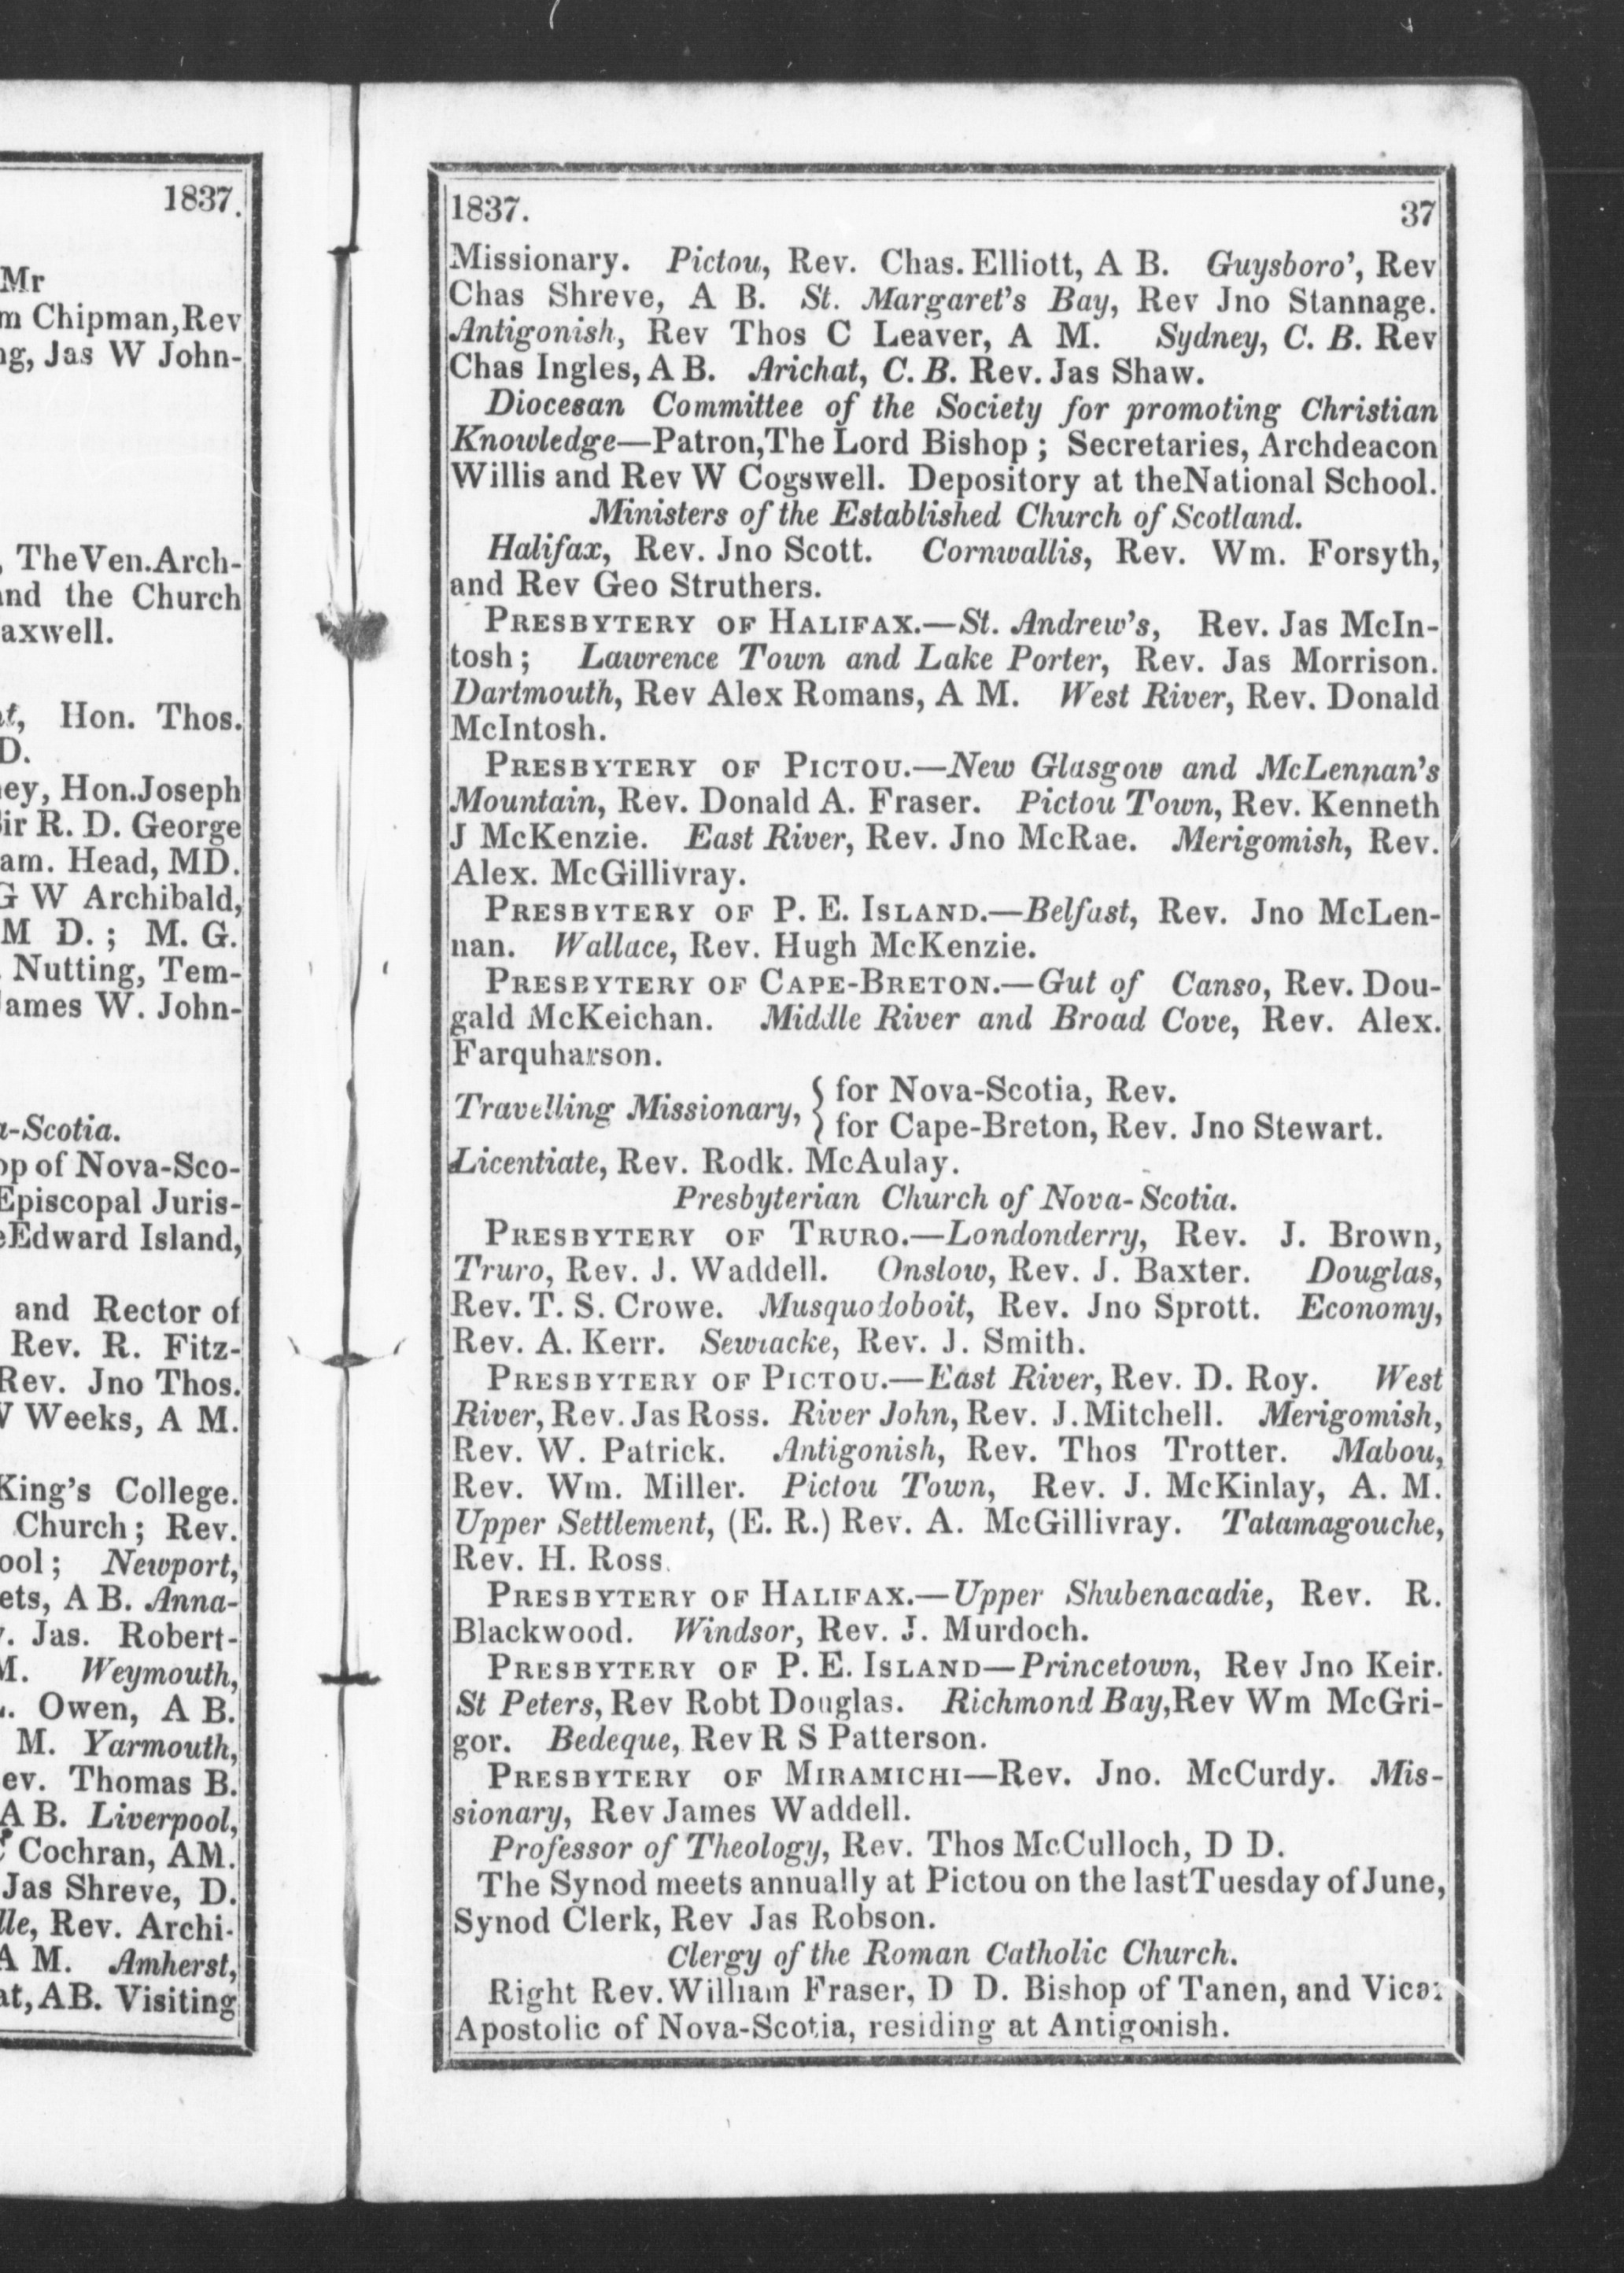 1837.
Mr
m Chipman, Rev
ng, Jas W John-
, The Ven. Arch-
and the Church
axwell.
t, Hon. Thos.
D.
ey, Hon. Joseph
ir R. D. George
am. Head, MD.
G W Archibald,
M D. ; M. G.
Nutting, Tem-
James W. John-
a-Scotia.
op of Nova-Sco-
Episcopal Juris-
eEdward Island,
and Rector of
Rev. R. Fitz-
Rev. Jno Thos.
W Weeks, A M.
King's College.
Church; Rev.
ool; Newport,
ets, A B. Anna-
. Jas. Robert-
M. Weymouth,
. Owen, A B.
M. Yarmouth,
ev. Thomas B.
A B. Liverpool,
Cochran, AM.
Jas Shreve, D.
lle, Rev. Archi-
A M. Amherst,
at, AB. Visiting
1837. 37
Missionary. Pictou, Rev. Chas. Elliott, A B. Guysboro', Rev
Chas Shreve, A B. St. Margaret's Bay, Rev Jno Stannage.
Antigonish, Rev Thos C Leaver, A M. Sydney, C. B. Rev
Chas Ingles, A B. Arichat, C. B. Rev. Jas Shaw.
Diocesan Committee of the Society for promoting Christian
Knowledge—Patron, The Lord Bishop ; Secretaries, Archdeacon
Willis and Rev W Cogswell. Depository at the National School.
Ministers of the Established Church of Scotland.
Halifax, Rev. Jno Scott. Cornwallis, Rev. Wm. Forsyth,
and Rev Geo Struthers.
PRESBYTERY OF HALIFAX.—St. Andrew's, Rev. Jas McIn-
tosh ; Lawrence Town and Lake Porter, Rev. Jas Morrison.
Dartmouth, Rev Alex Romans, A M. West River, Rev. Donald
McIntosh.
PRESBYTERY OF PICTOU.—New Glasgow and McLennan's
Mountain, Rev. Donald A. Fraser. Pictou Town, Rev. Kenneth
J McKenzie. East River, Rev. Jno McRae. Merigomish, Rev.
Alex. McGillivray.
PRESBYTERY OF P. E. ISLAND.—Belfast, Rev. Jno McLen-
nan. Wallace, Rev. Hugh McKenzie.
PRESBYTERY OF CAPE-BRETON.—Gut of Canso, Rev. Dou-
gald McKeichan. Middle River and Broad Cove, Rev. Alex.
Farquharson.
Travelling Missionary, { for Nova-Scotia, Rev.
for Cape-Breton, Rev. Jno Stewart.
Licentiate, Rev. Rodk. McAulay.
Presbyterian Church of Nova-Scotia.
PRESBYTERY OF TRURO.—Londonderry, Rev. J. Brown,
Truro, Rev. J. Waddell. Onslow, Rev. J. Baxter. Douglas,
Rev. T. S. Crowe. Musquodoboit, Rev. Jno Sprott. Economy,
Rev. A. Kerr. Sewiacke, Rev. J. Smith.
PRESBYTERY OF PICTOU.—East River, Rev. D. Roy. West
River, Rev. Jas Ross. River John, Rev. J. Mitchell. Merigomish,
Rev. W. Patrick. Antigonish, Rev. Thos Trotter. Mabou,
Rev. Wm. Miller. Pictou Town, Rev. J. McKinlay, A. M.
Upper Settlement, (E. R.) Rev. A. McGillivray. Tatamagouche,
Rev. H. Ross.
PRESBYTERY OF HALIFAX.—Upper Shubenacadie, Rev. R.
Blackwood. Windsor, Rev. J. Murdoch.
PRESBYTERY OF P. E. ISLAND—Princetown, Rev Jno Keir.
St Peters, Rev Robt Douglas. Richmond Bay, Rev Wm McGri-
gor. Bedeque, Rev R S Patterson.
PRESBYTERY OF MIRAMICHI—Rev. Jno. McCurdy. Mis-
sionary, Rev James Waddell.
Professor of Theology, Rev. Thos McCulloch, D D.
The Synod meets annually at Pictou on the last Tuesday of June,
Synod Clerk, Rev Jas Robson.
Clergy of the Roman Catholic Church.
Right Rev. William Fraser, D D. Bishop of Tanen, and Vicar
Apostolic of Nova-Scotia, residing at Antigonish.